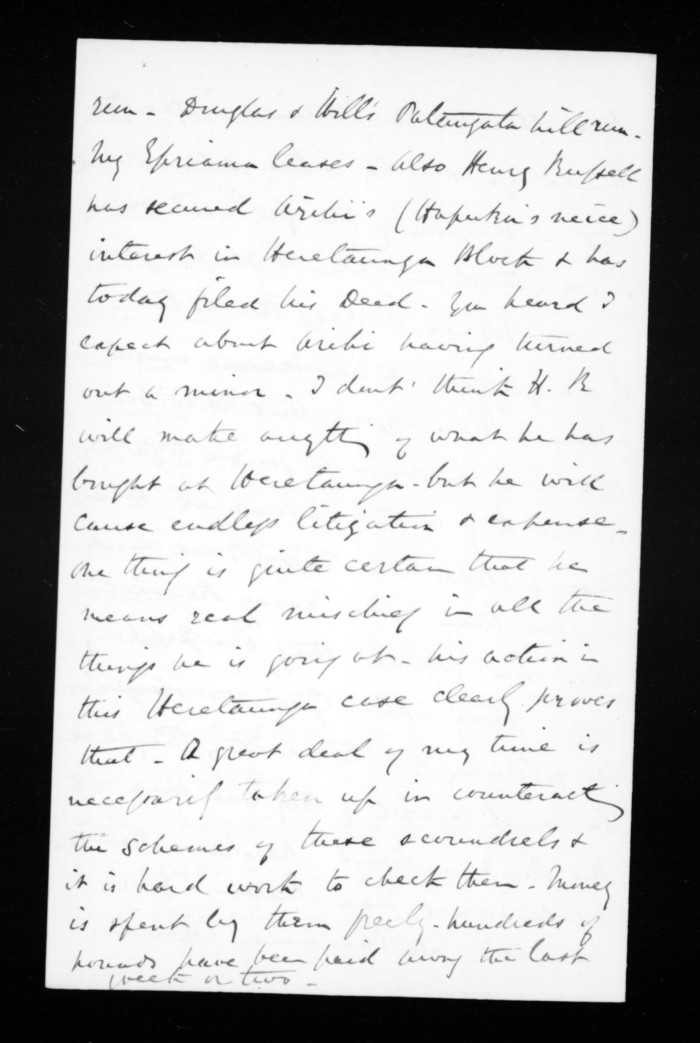 run - Douglas & Hill's Patangata hill run -
My Epriama leases - Also Henry Russell
has secured Arihi's (Hapuku's neice)
interest in Heretaunga Block & has
today filed his Deed - You heard I
expect about Arihi having turned
out a minor - I dont' think H. R
will make anything of what he has
bought at Heretaunga - but he will
cause endless litigation & expense -
one thing is quite certain that he
means real mischief in all the
things he is going at - his action in
this Heretaunga case clearly proves
that - A great deal of my time is
necessarily taken up in counteracting
the schemes of these scoundrels &
it is hard work to check them - Money
is spent by them freely - hundreds of
pounds have been paid away the last
week or two -